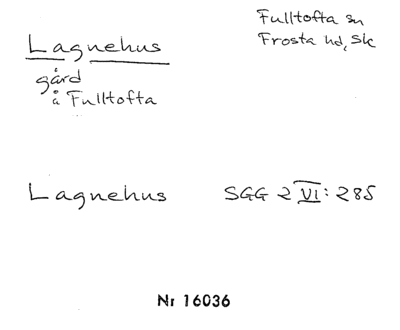 Lagnehus
gård
å Fulltofta
Fulltofta sn
Frosta hd, Sk
Lagnehus SGG 2 VI: 285
Nr 16036